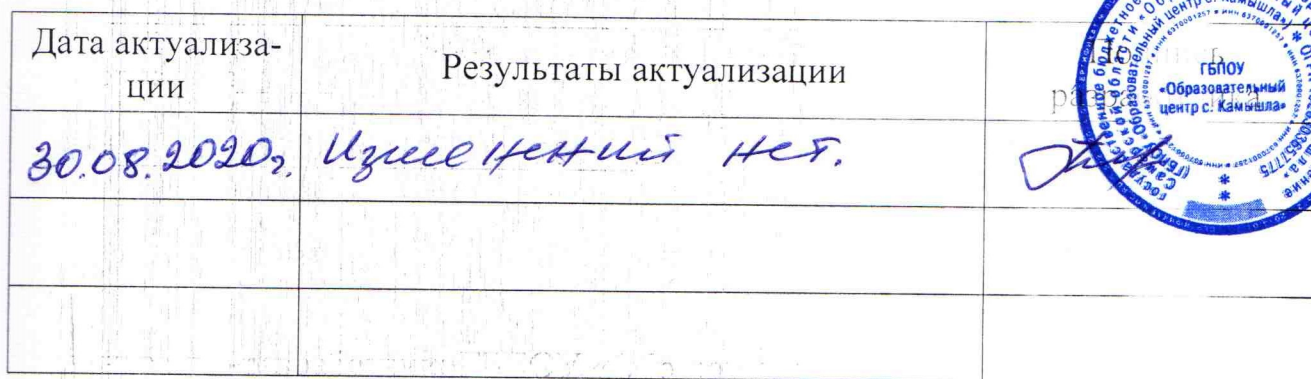 Дата актуализа-
ции
Результаты актуализации
30.08.2020г.
Изменений нет.
ГБПОУ
«Образовательный
центр с. Камышла»